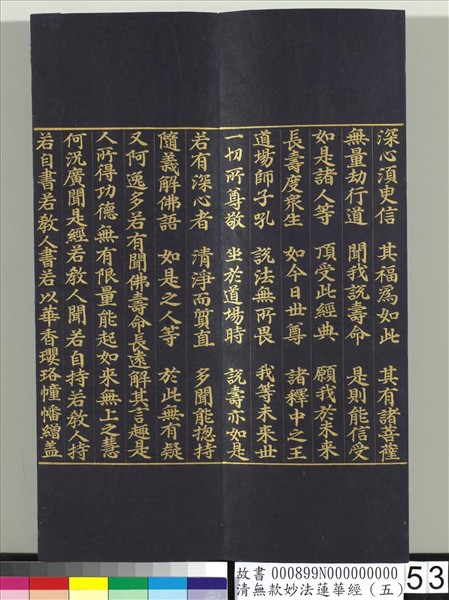 深心須臾信　其福為如此　其有諸菩薩
無量劫行道　聞我說壽命　是則能信受
如是諸人等　頂受此經典　願我於未來
長壽度眾生　如今日世尊　諸釋中之王
道場師子吼　說法無所畏　我等未來世
一切所尊敬　坐於道場時　說壽亦如是
若有深心者　清淨而質直　多聞能揔持
隨義解佛語　如是之人等　於此無有疑
又阿逸多若有聞佛壽命長遠解其言趣是
人所得功德無有限量能起如來無上之慧
何況廣聞是經若教人聞若自持若教人持
若自書若教人書若以華香瓔珞幢幡繒盖
故書 000899N000000000
清無款妙法蓮華經（五）
53